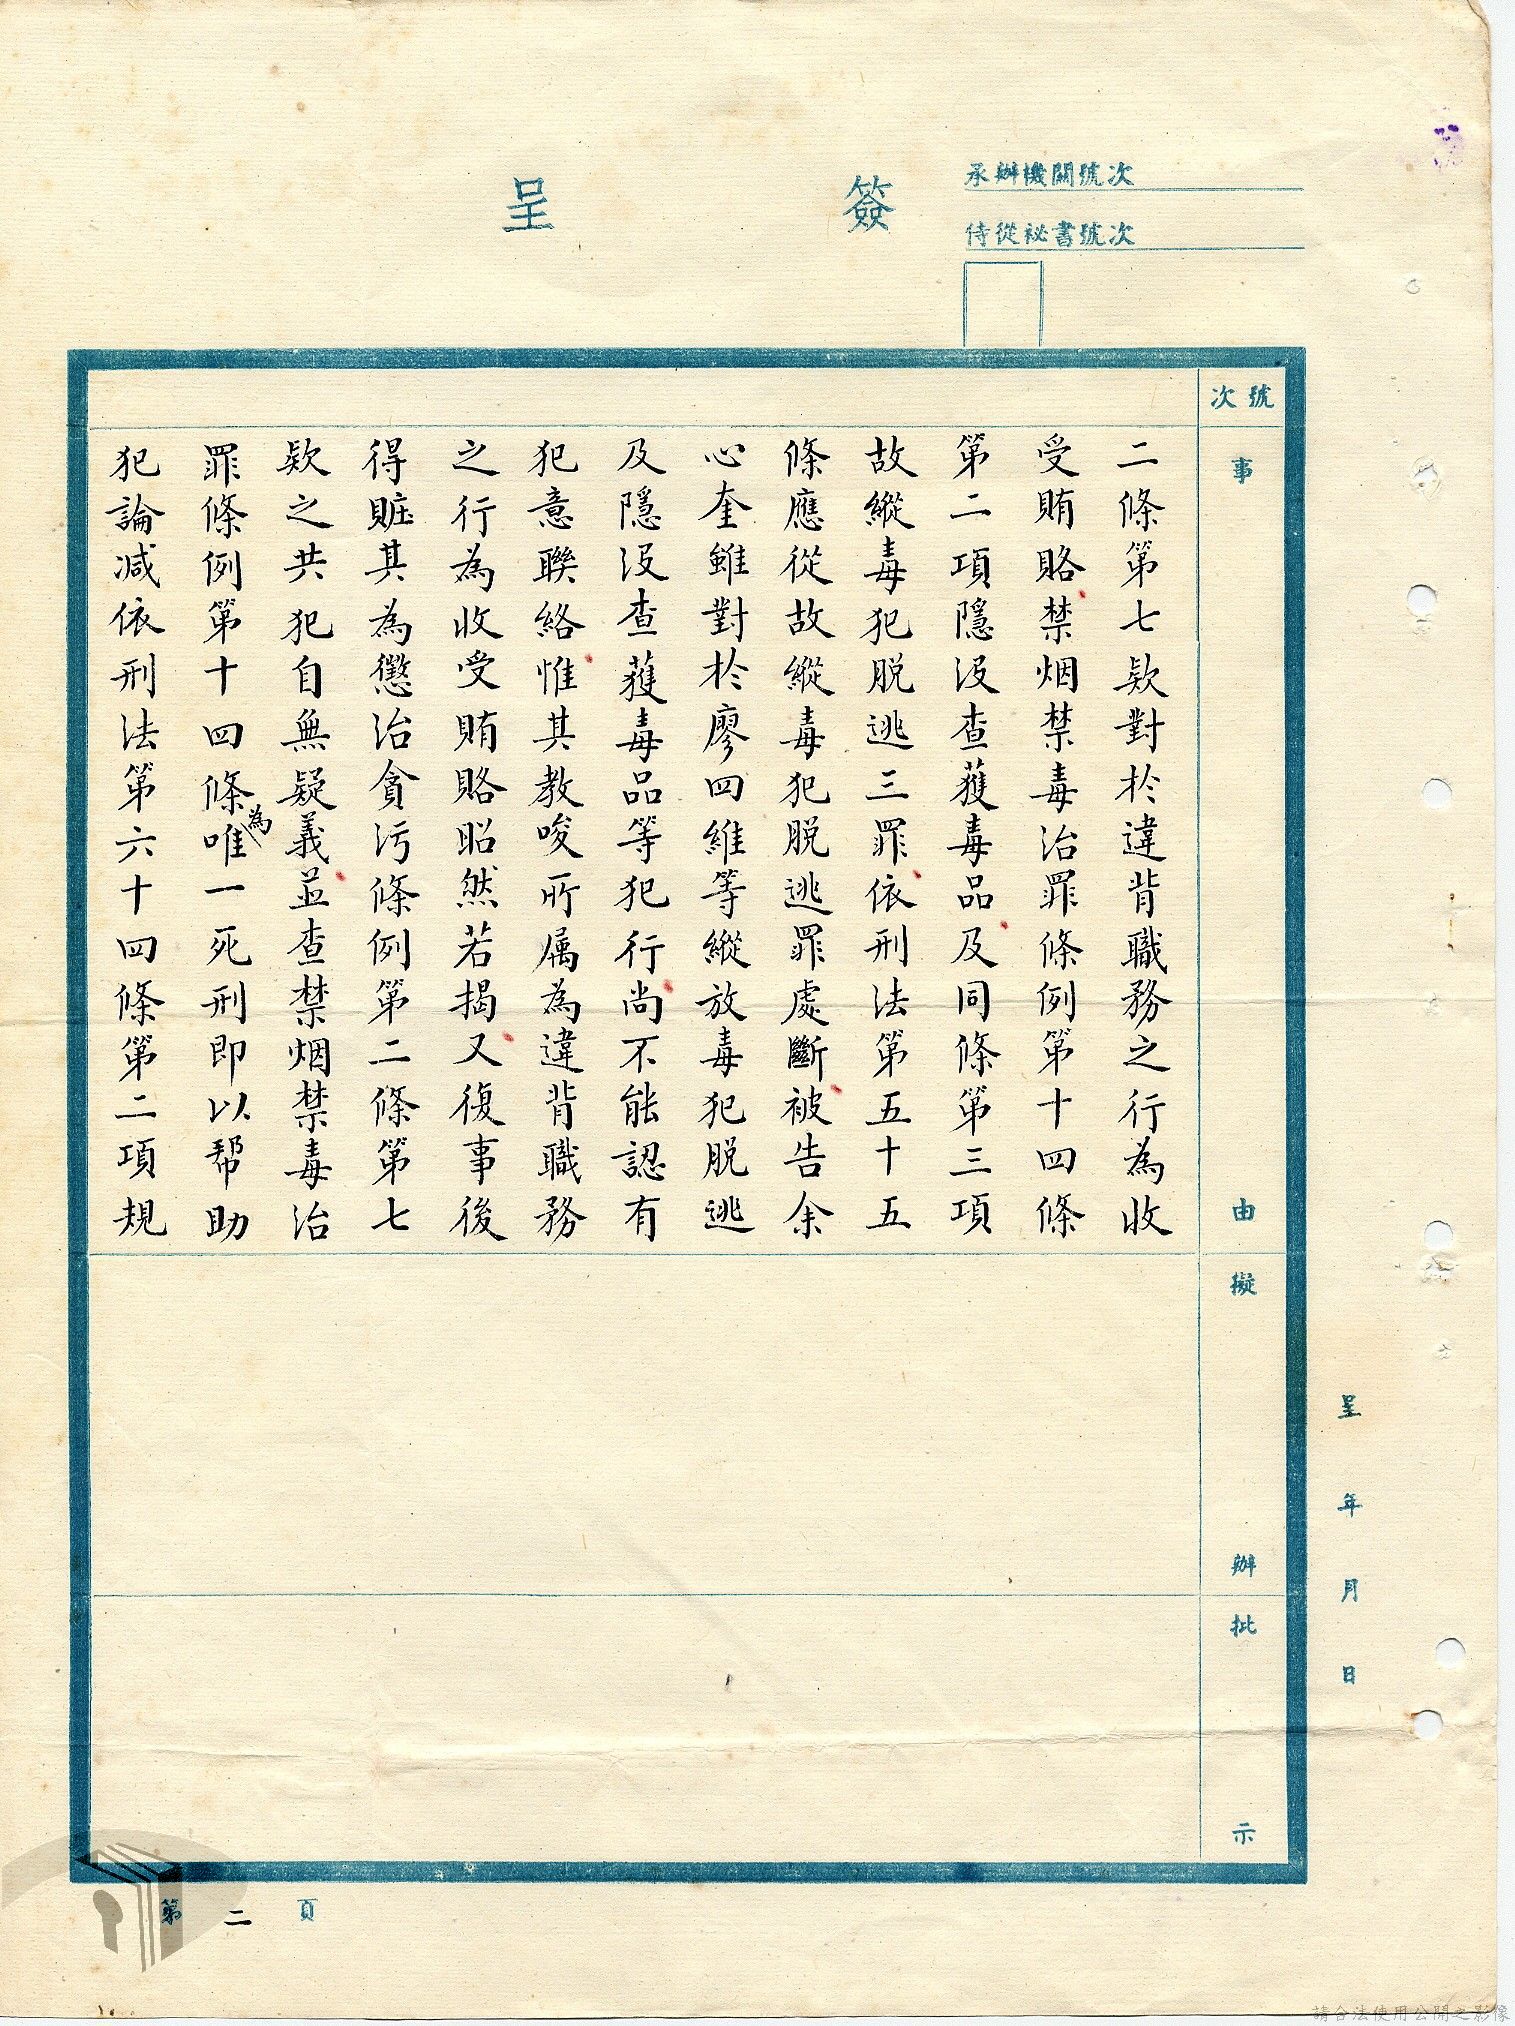 簽呈
承辦機關號次
侍從祕書號次
號次
事由
擬辦
批示
二條第七款對於違背職務之行為收
受賄賂禁烟禁毒治罪條例第十四條
第二項隱沒查獲毒品及同條第三項
故縱毒犯脱逃三罪依刑法第五十五
條應從故縱毒犯脱逃罪處斷被告余
心奎雖對於廖四維等縱放毒犯脱逃
及隱沒查獲毒品等犯行尚不能認有
犯意聯絡惟其教唆所属為違背職務
之行為收受賄賂昭然若揭又復事後
得賍其為懲治貪污條例第二條第七
款之共犯自無疑義並查禁烟禁毒治
罪條例第十四條為唯一死刑即以帮助
犯論减依刑法第六十四條第二項規
呈年月日
第二頁
請合法使用公開之影像